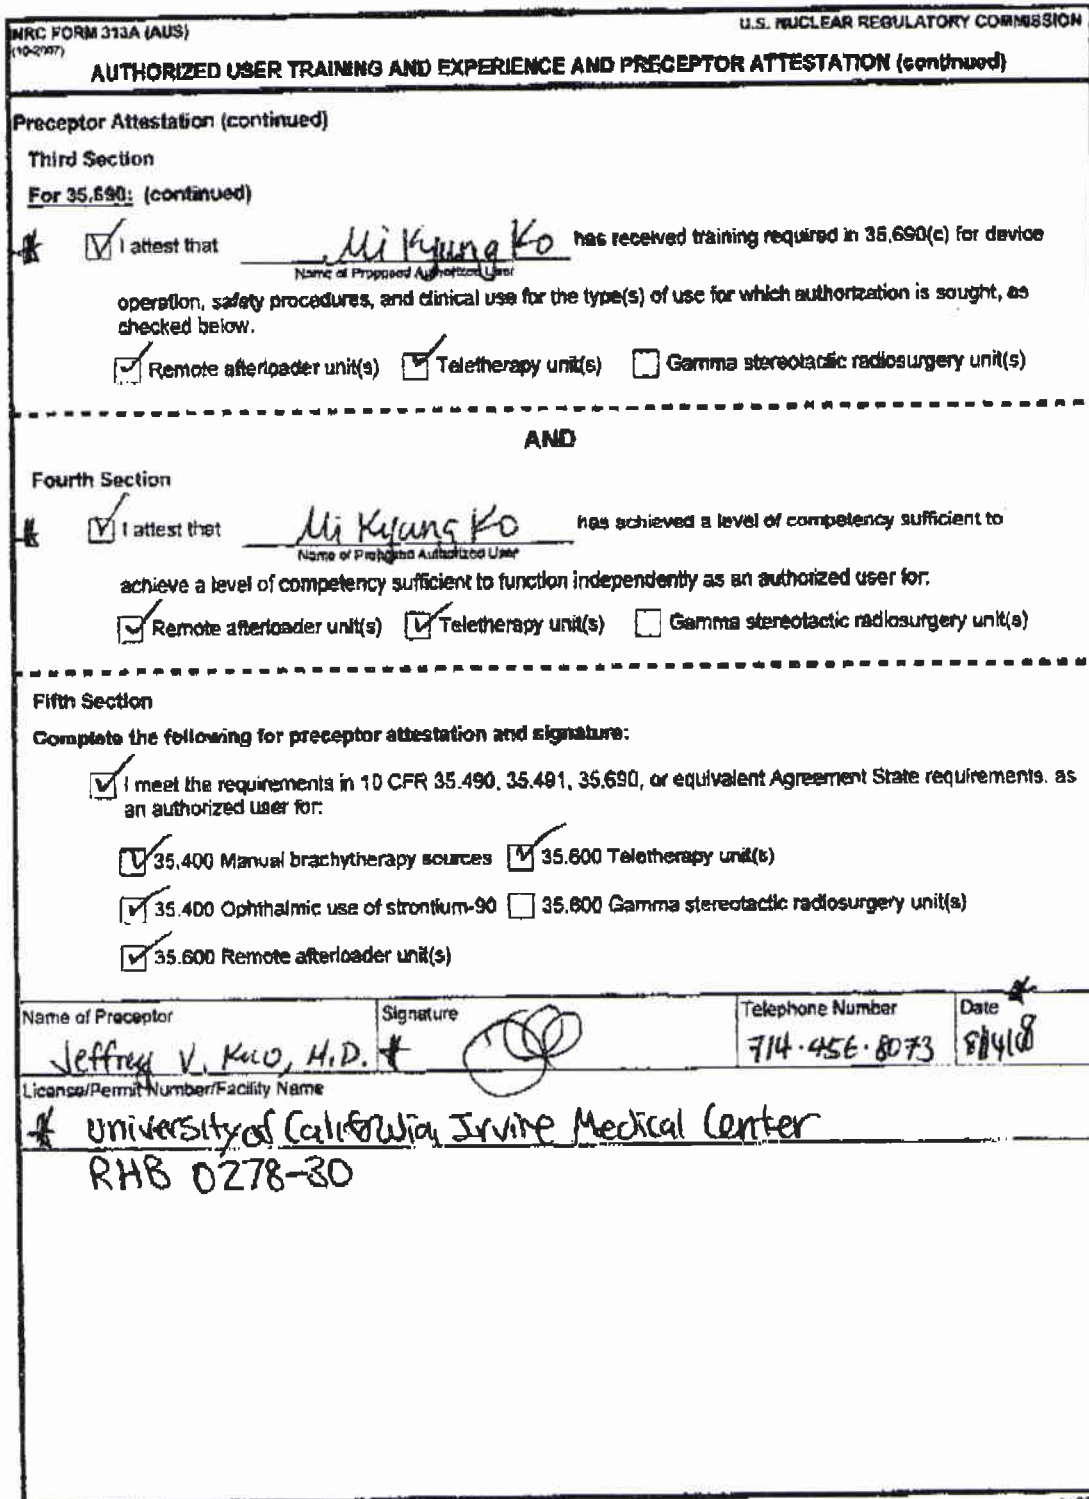 NRC FORM 313A (AUS)
U.S. NUCLEAR REGULATORY COMMISSION
(10-2007)
AUTHORIZED USER TRAINING AND EXPERIENCE AND PRECEPTOR ATTESTATION (continued)
Preceptor Attestation (continued)
Third Section
For 35.690: (continued)
I attest that Mi Kyung Ko has received training required in 35.690(c) for device
Name of Proposed Authorized User
operation, safety procedures, and clinical use for the type(s) of use for which authorization is sought, as
checked below.
Remote afterloader unit(s) Teletherapy unit(s) Gamma stereotactic radiosurgery unit(s)
AND
Fourth Section
I attest that Mi Kyung Ko has achieved a level of competency sufficient to
Name of Proposed Authorized User
achieve a level of competency sufficient to function independently as an authorized user for:
Remote afterloader unit(s) Teletherapy unit(s) Gamma stereotactic radiosurgery unit(s)
Fifth Section
Complete the following for preceptor attestation and signature:
I meet the requirements in 10 CFR 35.490, 35.491, 35.690, or equivalent Agreement State requirements, as
an authorized user for:
35.400 Manual brachytherapy sources 35.600 Teletherapy unit(s)
35.400 Ophthalmic use of strontium-90 35.600 Gamma stereotactic radiosurgery unit(s)
35.600 Remote afterloader unit(s)
Name of Preceptor Signature Telephone Number Date
Jeffrey V. Kuo, M.D. 714.456.8073
License/Permit Number/Facility Name
University of California, Irvine Medical Center
RHB 0278-30